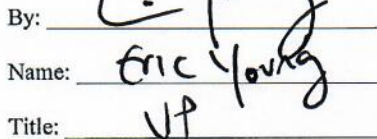 By:
Name: Eric Young
Title: VP